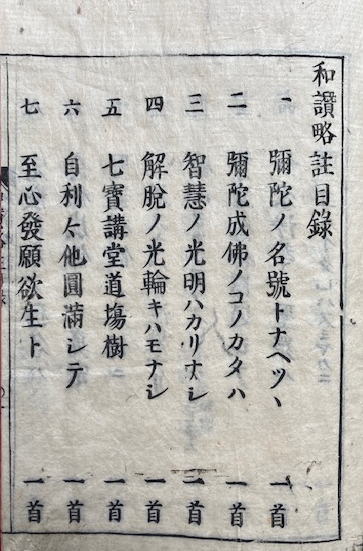 和讃略註目錄
一 彌陀ノ名號トナヘツヽ 一首
二 彌陀成佛ノコノカタハ 一首
三 智慧ノ光明ハカリナシ 一首
四 解脫ノ光輪キハモナシ 一首
五 七寶講堂道塲樹 一首
六 自利々他圓滿シテ 一首
七 至心發願欲生ト 一首